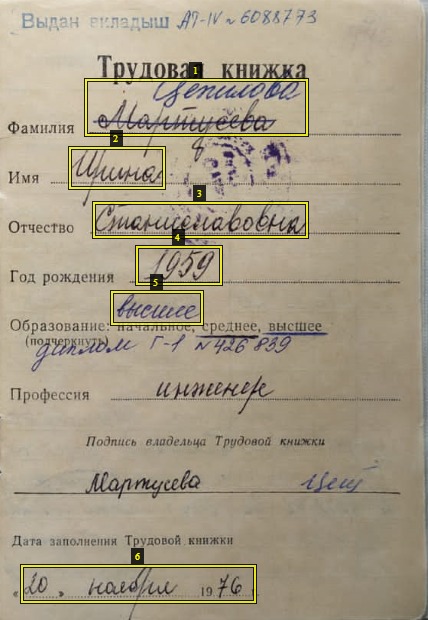 Выдан вкладыш АТ-IV № 6088773
Трудовая книжка
Цепилова
Фамилия Мартусева
Имя Ирина
Отчество Станиславовна
Год рождения 1959
высшее
Образование: начальное, среднее, высшее
(подчеркнуть) диплом Г-1 № 426839
Профессия инженер
Подпись владельца Трудовой книжки
Мартусева Цеп
Дата заполнения Трудовой книжки
«20» ноября 1976 г.
1
2
3
4
5
6